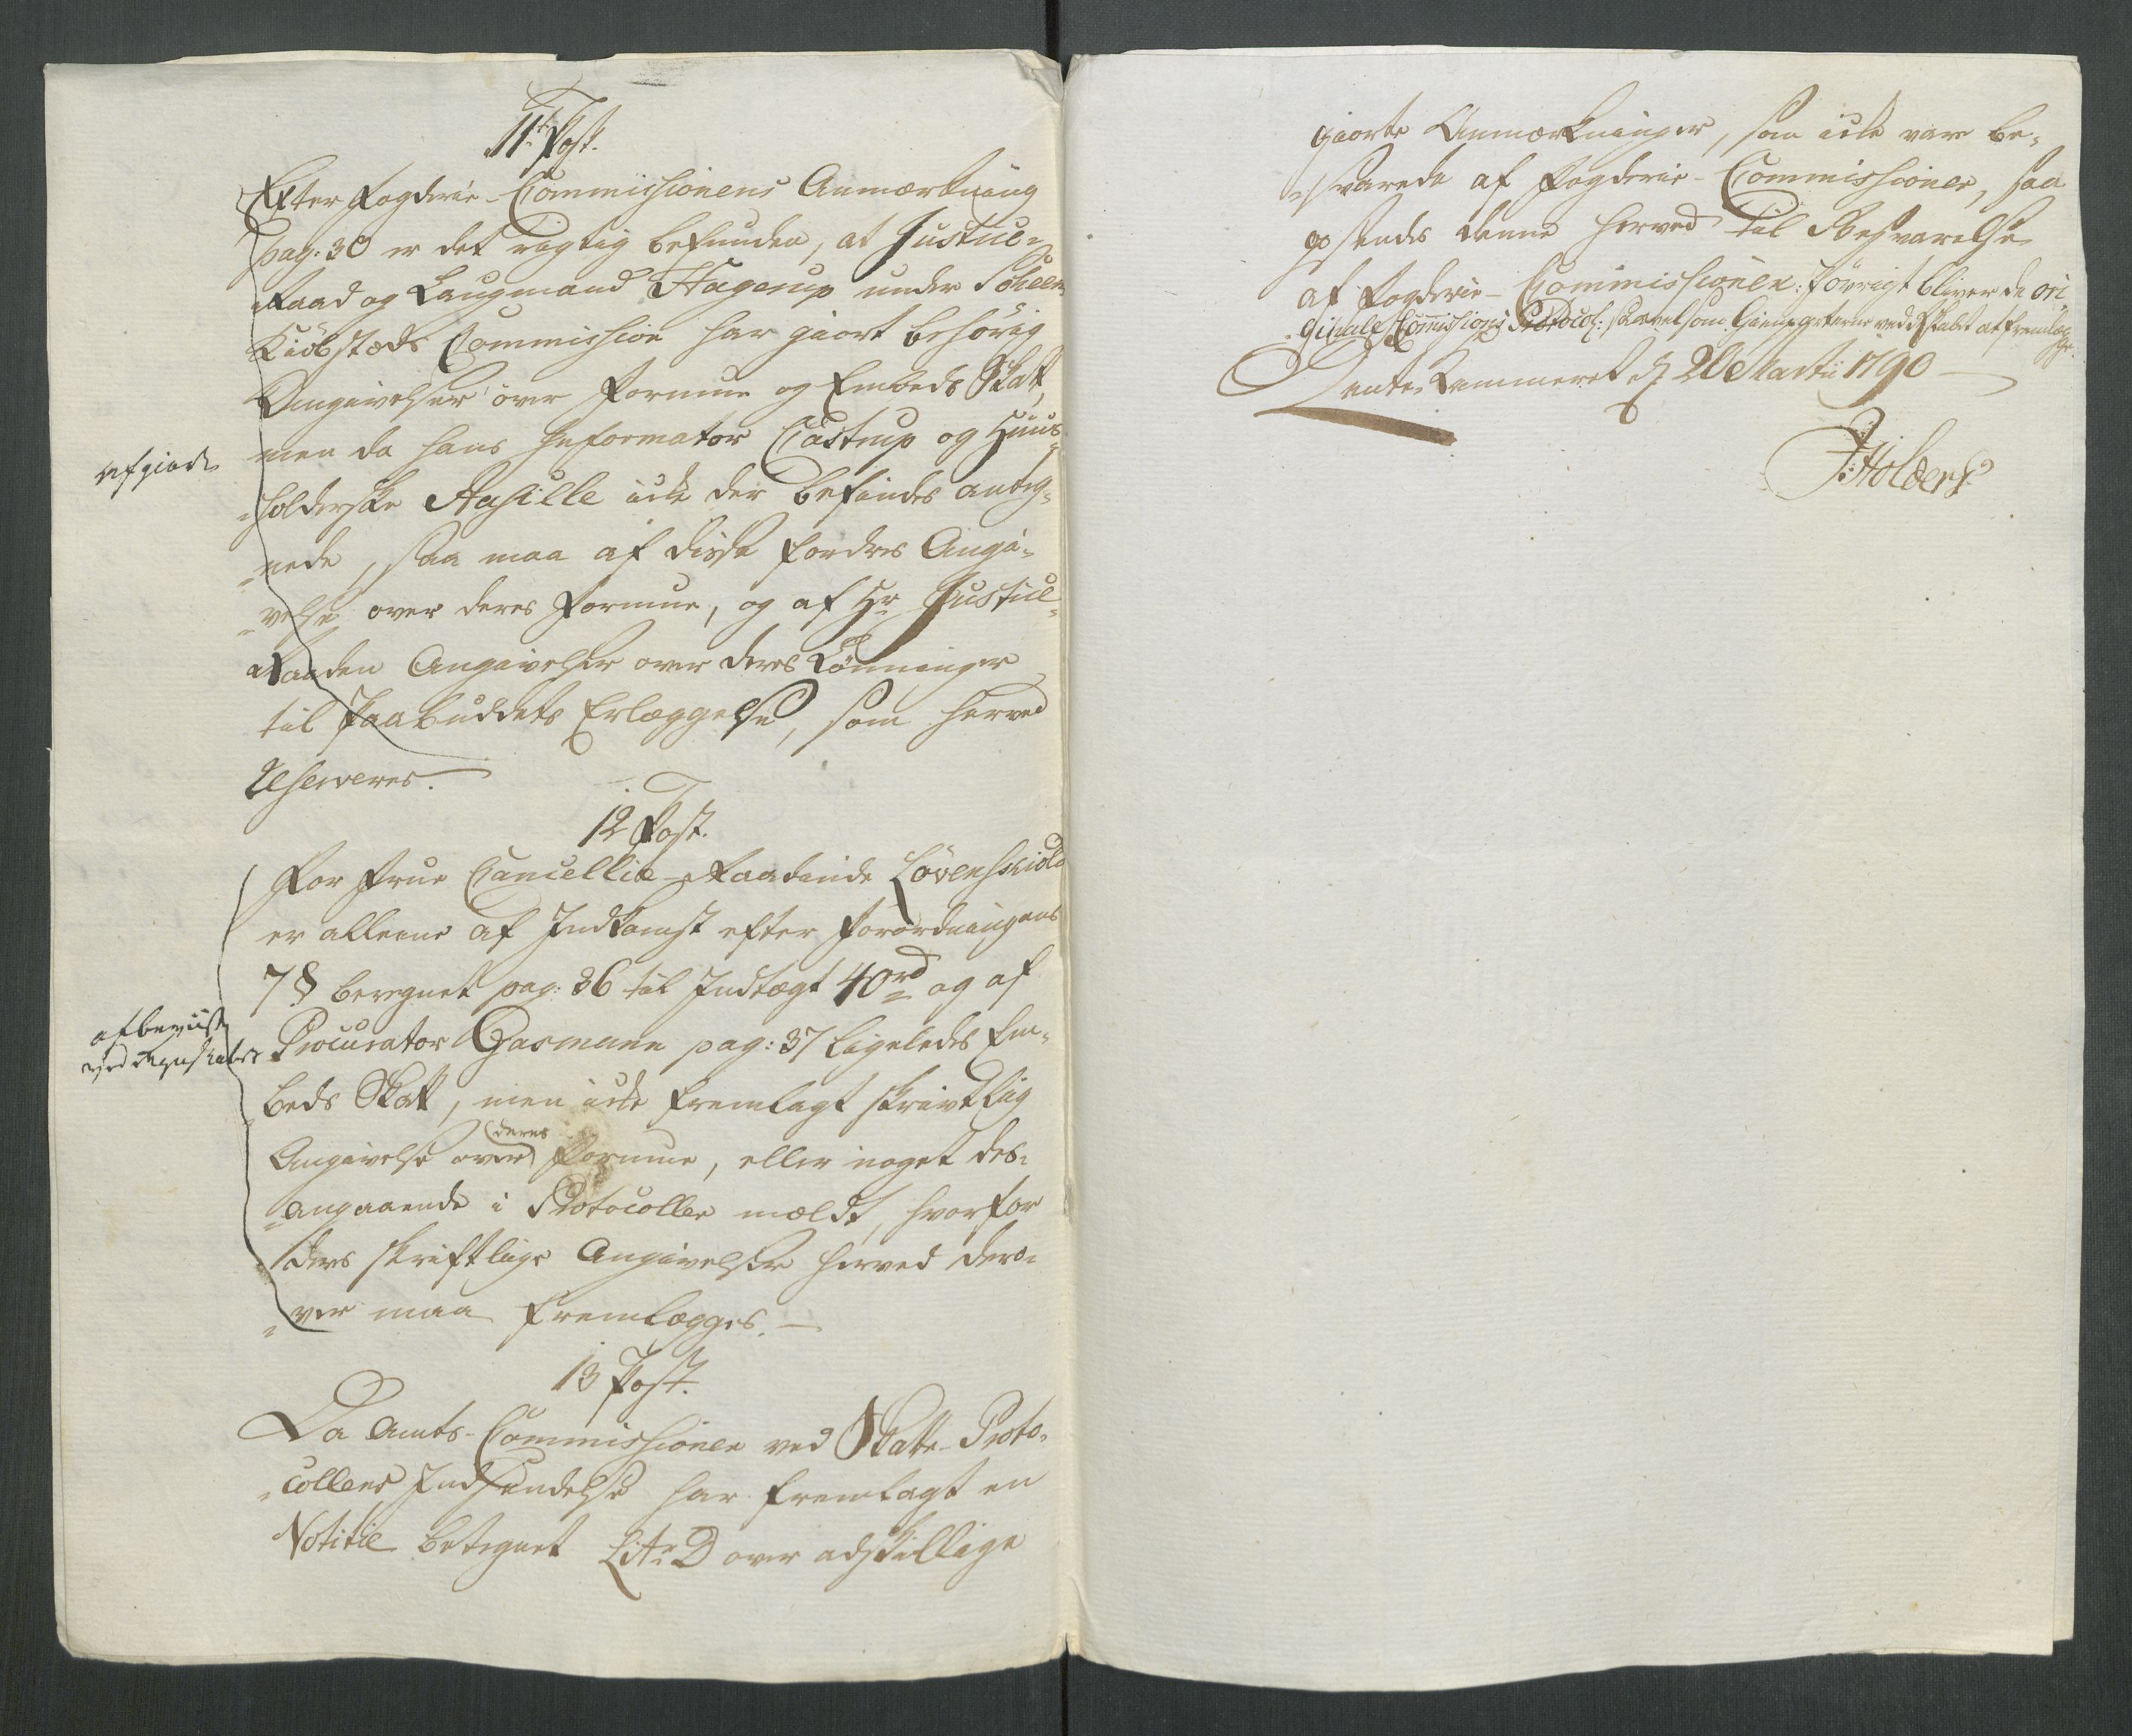 11te Post.
Efter Fogderie-Commissionens Anmærkning
pag: 30 er det rigtig befunden, at Justice-
Raad og Laugmand Hagerup under Scheens
Kiöbstæds Commission har giort behörig
Angivelser over Formue og Embeds Skat,
men da hans Informator Castrup og Huus-
holderske Aasille icke der befindes anteg-
nede, saa maa af disse fordres Angi-
velse over deres Formue, og af Hr Justice
Raaden Angivelser over deres Lönninger
til Paabuddets Erlæggelse, som herved
reserveres.
afgiort
12 Post.
For Frue Cancellie-Raadinde Lövenskiold
er alleene af Indkomst efter Forordningens
7 § beregnet pag: 36 til Indtægt 40 rd og af
Procurator Gasmann pag: 37 ligeledes Em-
beds Skatt, men icke fremlagt skrivtlig
Angivelse over deres Formue, eller noget des-
angaaende i Protocollen meldt, hvorfor
deres skriftlige Angivelser herved dero-
ver maa fremlægges. —
afbeviist
ved Regnskabet
13 Post.
Da Amts-Commissionen ved Skatte-Proto-
collens Indsendelse har fremlagt en
Notitie betegnet Litr D over adskillige
giorte Anmærkninger, som icke vare be-
svarede af Fogderie-Commissionen, saa
sendes denne herved til Besvarelse
af Fogderie-Commissionen: Iövrigt bliver de ori-
ginale Commissions Protocol: saavelsom Gienparterne ved Skabet at fremlægge.
Rente Kammeret d 20 Martii 1790 —
J: Holbers